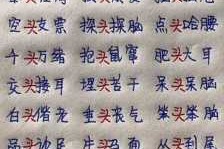 空头支票 探头探脑 点头哈腰
千头万绪 抱头鼠窜 肥头大耳
交头接耳 埋头苦干 呆头呆脑
白头偕老 垂头丧气 笨头笨脑